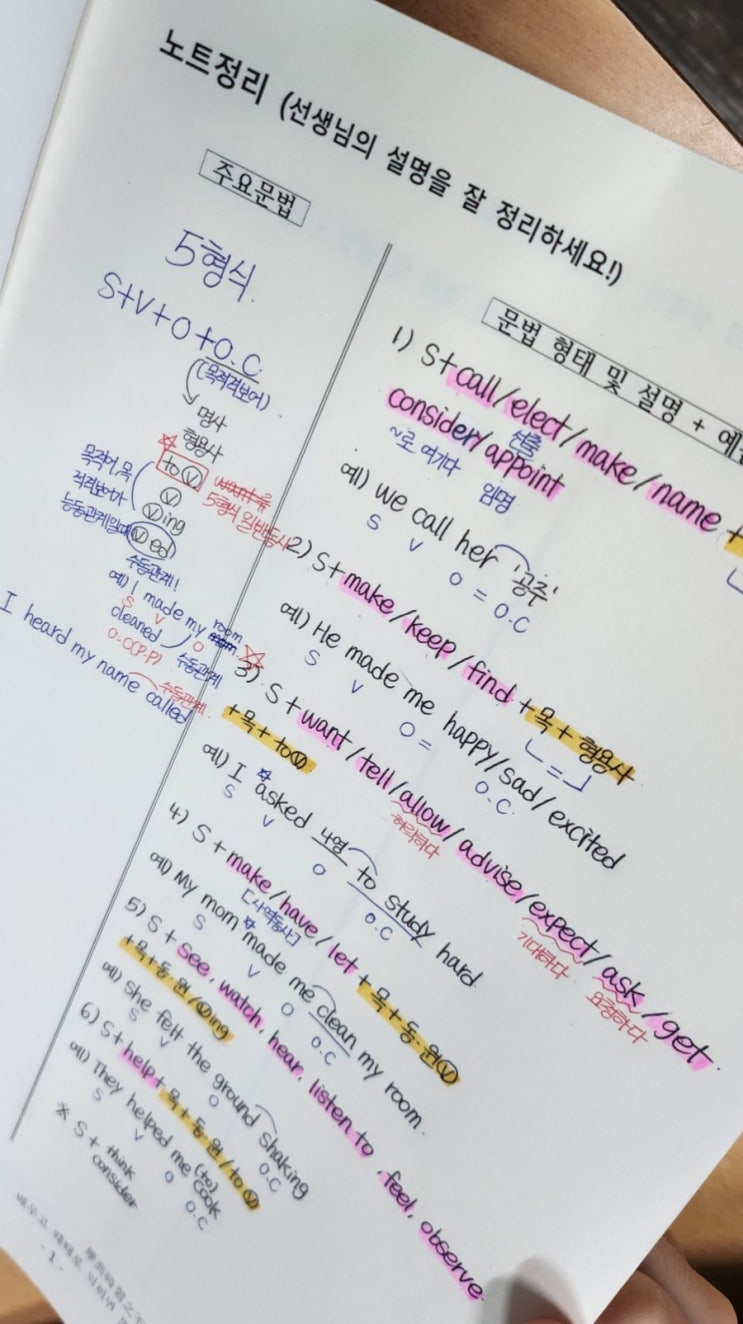 노트정리 (선생님의 설명을 잘 정리하세요!)
주요문법
5형식
S+V+O+O.C
(목적격보어)
명사
형용사
to V
V
Ving
V ed
목적어, 목
적격보어가
능동관계일때
5형식 일반동사
수동관계!!
예) I made my room
S V O
cleaned
O.C(P.P) 수동관계
I heard my name called
수동관계
문법 형태 및 설명 + 예
1) S+call/elect/make/name +
선출
consider/appoint
~로 여기다 임명
예) We call her '공주'
S V O = O.C
2) S+make/keep/find +목+형용사
예) He made me happy/sad/excited
S V O = O.C.
3) S+want/tell/allow/advise/expect/ask/get
허락하다 기대하다 요청하다
+목+to V
예) I asked 4영 to study hard
S V O O.C
4) S+make/have/let+목+동.원 V
[사역동사]
예) My mom made me clean my room.
S V O O.C
5) S+see, watch, hear, listen to, feel, observe
+목+동.원/Ving
예) She felt the ground shaking
S V O O.C
6) S+help+목+동.원/to V
예) They helped me (to) cook
S V O O.C
※ S+think
consider
- 1 -